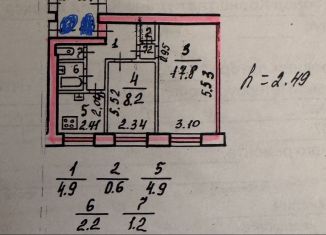 1 2
3
17.8
0.95
5.53
h = 2.49
6
4
8.2
5.52
5
2.41
2.34
3.10
1 2 5
4.9 0.6 4.9
6 7
2.2 1.2